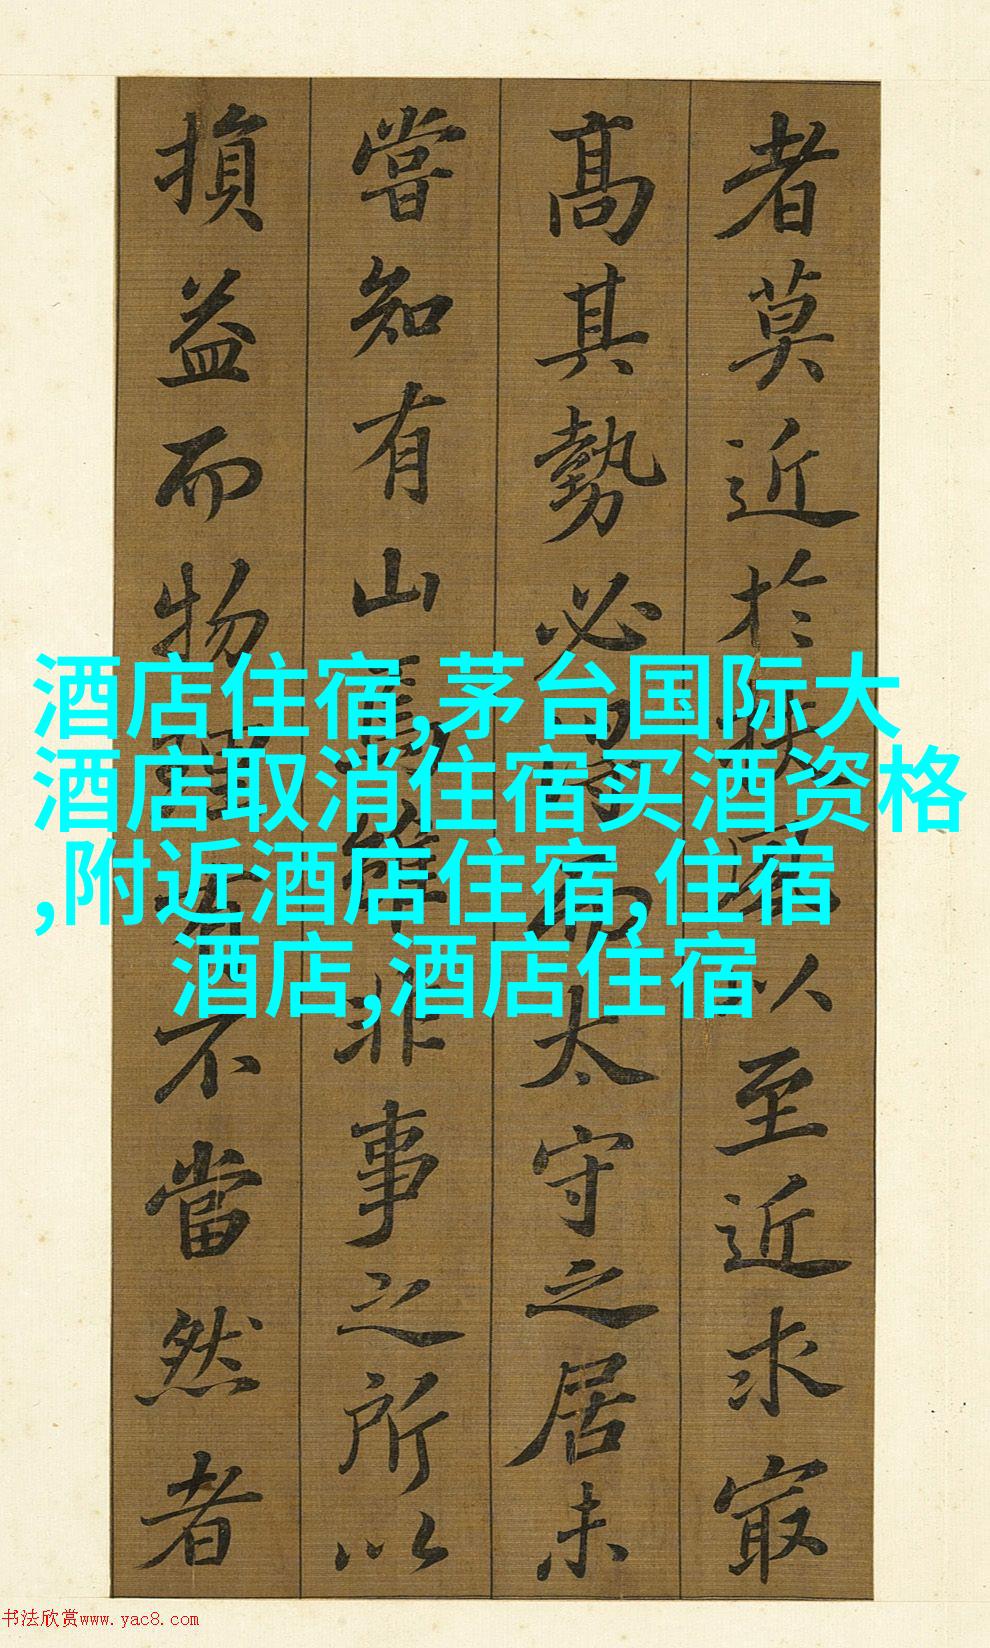 者莫近於扶風以至近求最
高其勢必得而太守之居未
嘗知有山焉雖非事之所以
損益而物理有不當然者
酒店住宿,茅台国际大
酒店取消住宿买酒资格
,附近酒店住宿,住宿
酒店,酒店住宿
书法欣赏www.yac8.com